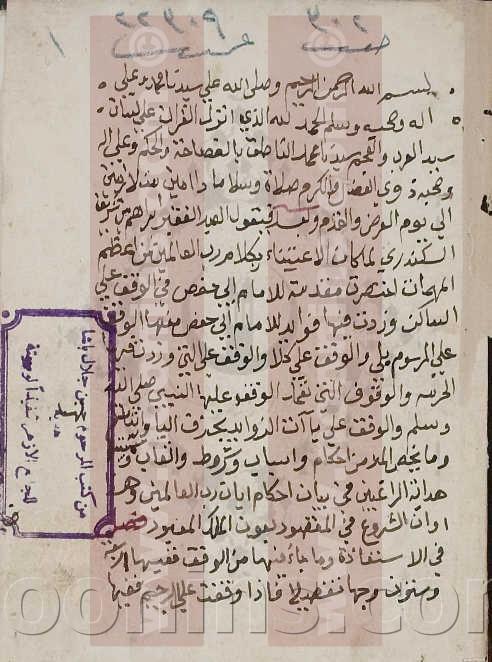 بسم الله الرحمن الرحيم وصلى الله على سيدنا محمد وعلى
اله وصحبه وسلم الحمد لله الذي انزل القران على لسان
سيد العرب والعجم سيدنا محمد الناطق بالفصاحة والحكم وعلى اله
وصحبه ذوي الفضل والكرم صلاة وسلاما دائمين متلازمين
الي يوم العرض والقدم وبعد فيقول العبد الفقير ابرهم بن
السكندري لما كان الاعتناء بكلام رب العالمين من اعظم
المهمات اختصرت مقدمة للامام ابي حفص في الوقف علي
الساكن وزدت فيها فوايد للامام ابي حفص منها الوقف
علي المرسوم بلي والوقف علي كلا والوقف علي التي وزدت
والوقوف التي تعمد الوقف عليها النبي صلى الله
وسلم والوقف علي يآت الزوايد بحذف الياء
وما يخص الهمز من احكام واسباب وشروط والقاب
هداية الراغبين في بيان احكام ايات رب العالمين وهذا
اوان الشروع في المقصود بعون الملك المعبود فصل
في الاستعاذة وما جاء فيها من الوقف ففيها
وستون وجها تفصيلا فاذا وقفت علي الرحيم ففيها
من كتب المرحوم حسن جلال باشا
هدية
للجامع الازهر تنفيذا لوصيته